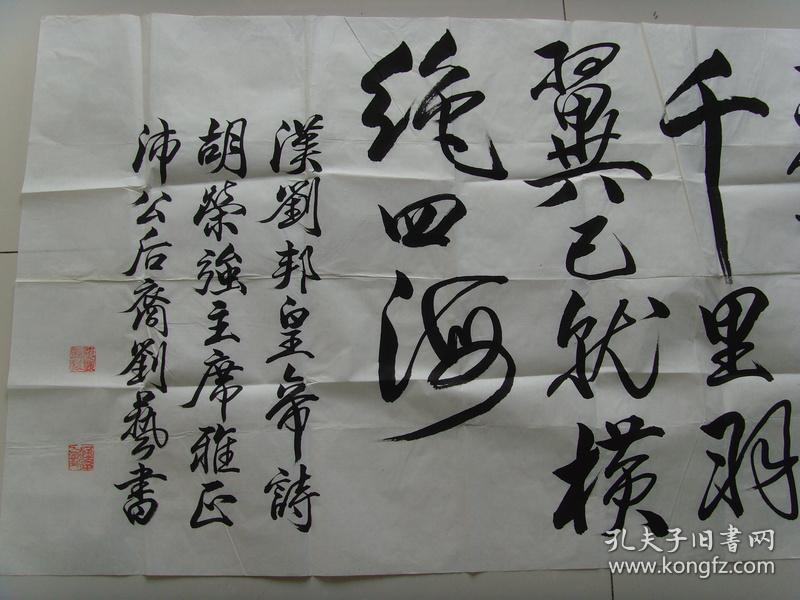 千里羽
翼已就横
绝四海
漢劉邦皇帝詩
胡榮強主席雅正
沛公后裔劉藝書
孔夫子旧書网
www.kongfz.com